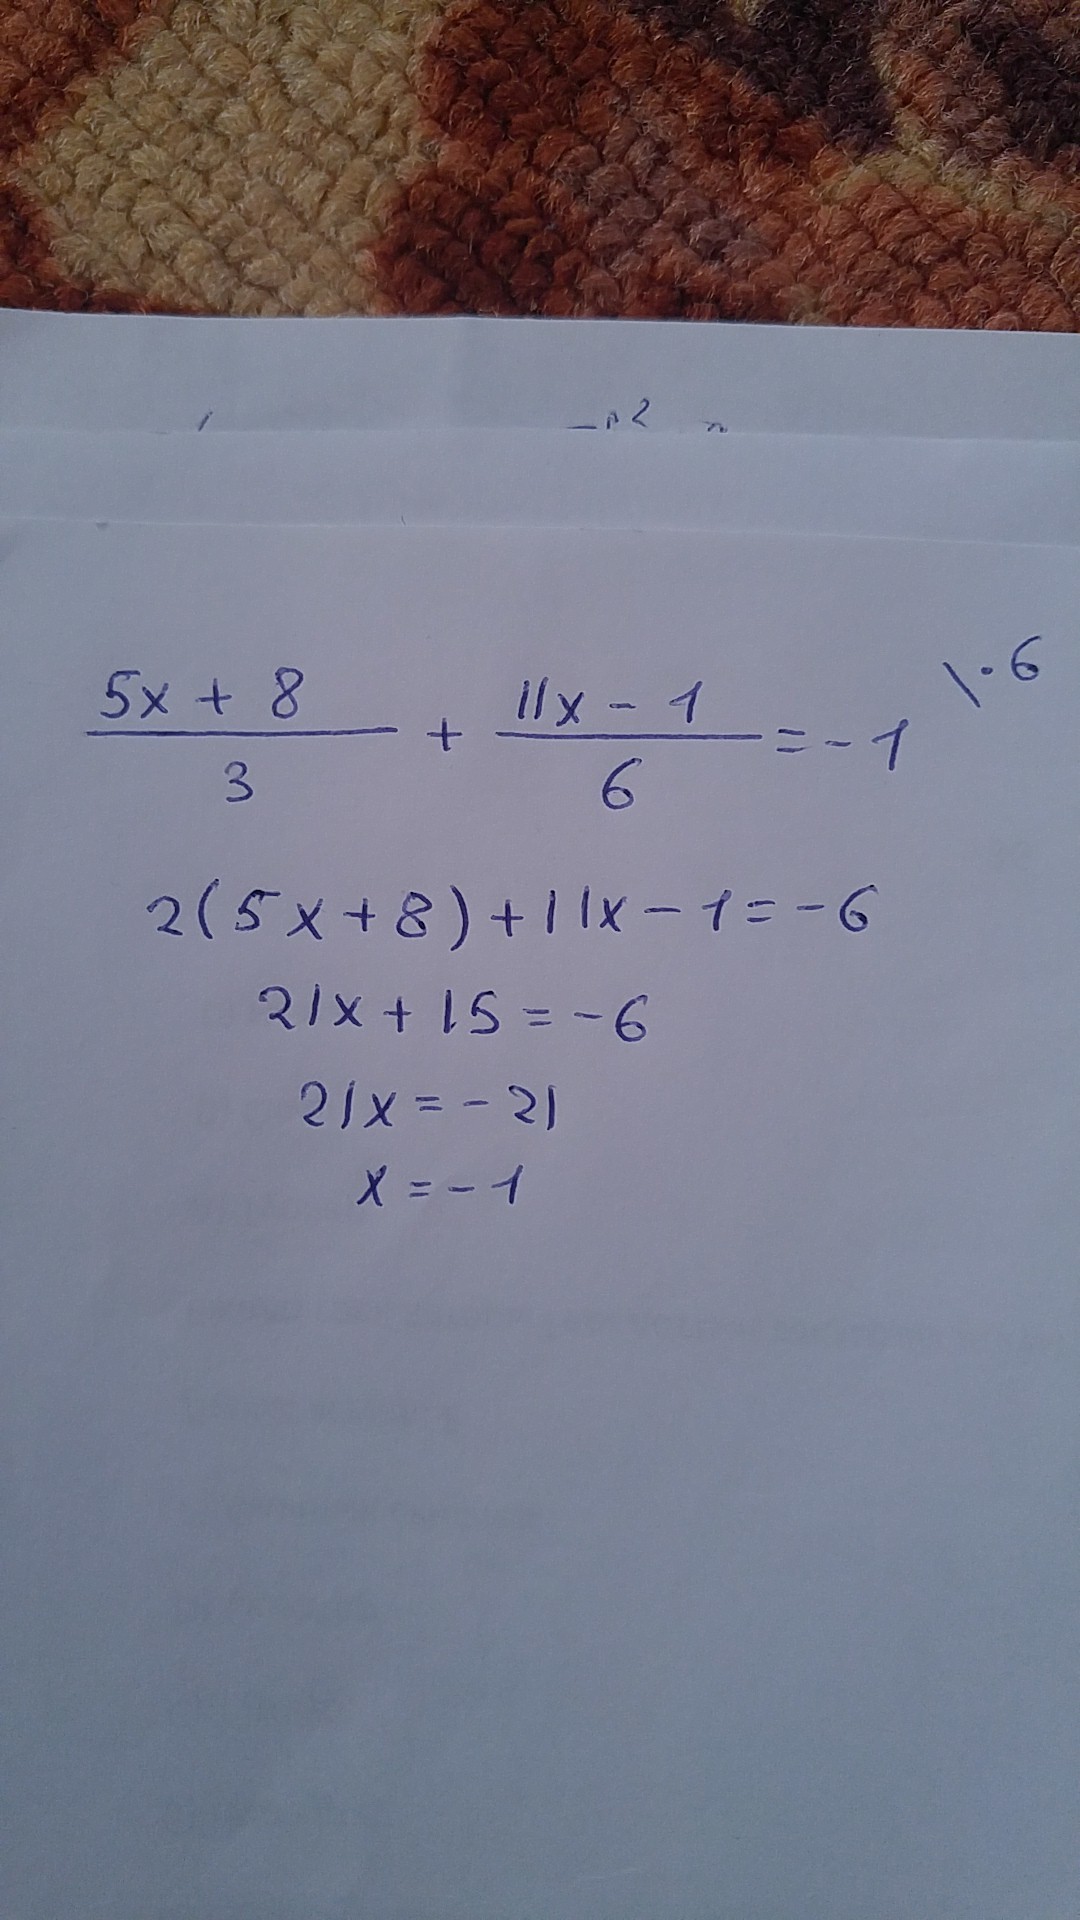 (5x + 8)/3 + (11x - 1)/6 = -1 \·6
2(5x+8)+11x-1=-6
21x+15=-6
21x=-21
x=-1